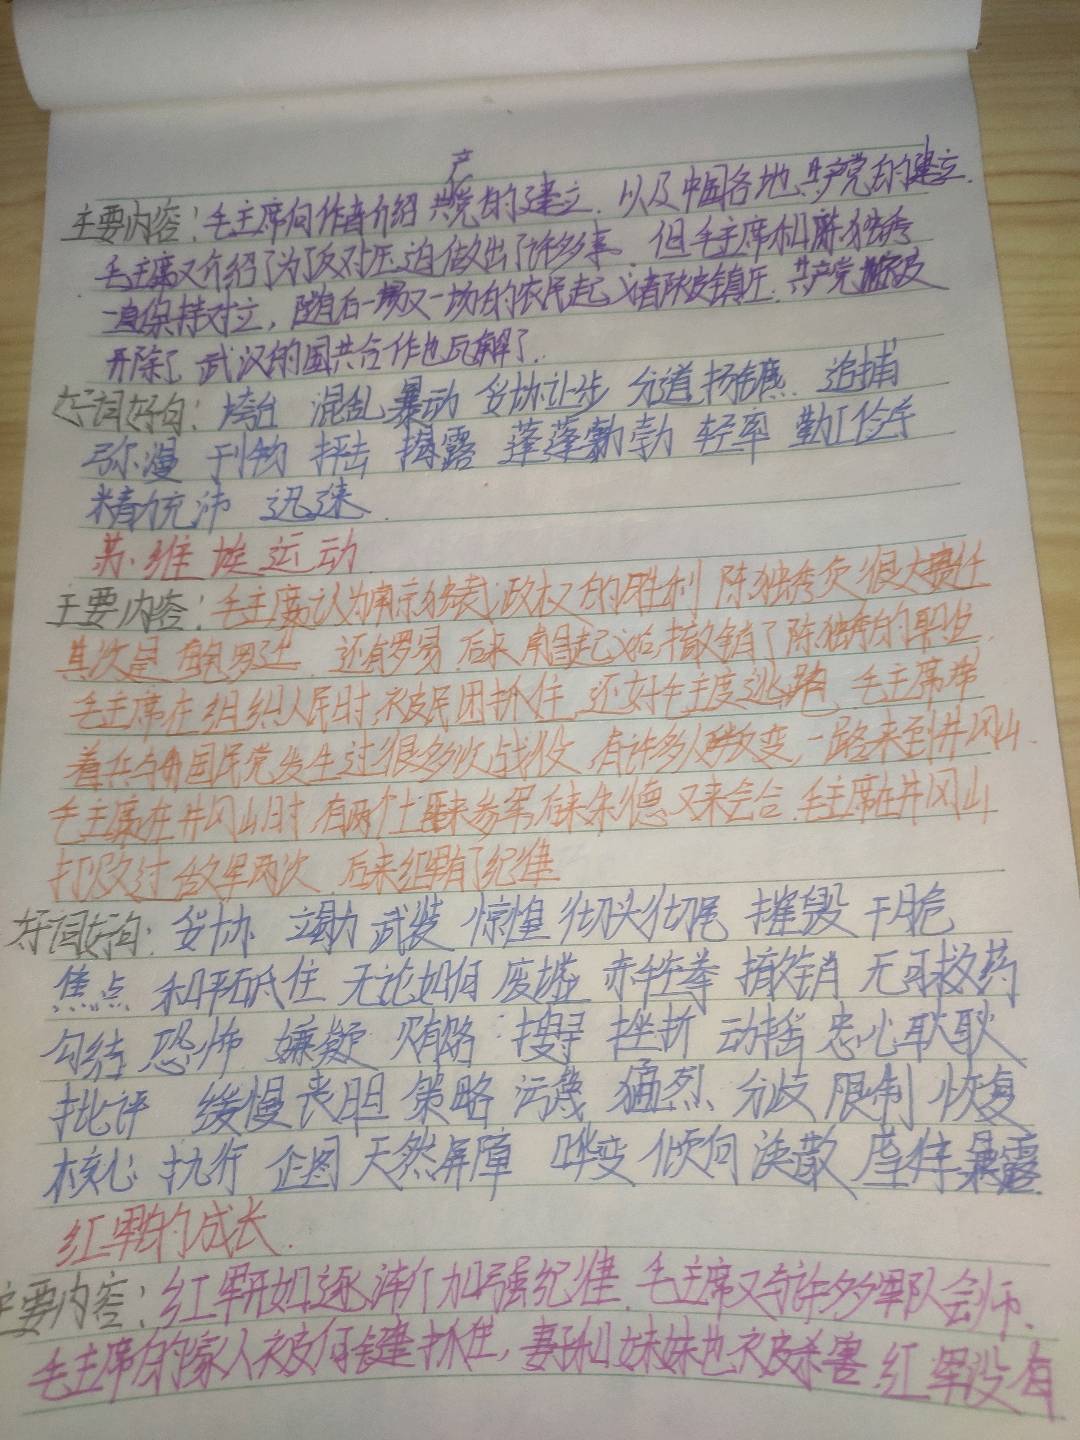 主要内容：毛主席向作者介绍共产党的建立.以及中国各地共产党的建立.
毛主席又介绍了为了反对压迫做出了许多事.但毛主席和陈独秀
一直保持对立，随后一场又一场的农民起义者陆皮镇压.共产党
开除了.武汉的国共合作也瓦解了.
好词好句：垮台 混乱 暴动 妥协让步 分道扬镳 追捕
弥漫 刊物 抨击 揭露 蓬蓬勃勃 轻率 勤工俭学
精力充沛 迅速.
苏维埃运动
主要内容：毛主席认为南京独裁政权的胜利 陈独秀负很大责任
其次是鲍罗廷 还有罗易 后来南昌起义后撤销了陈独秀的职位.
毛主席在组织人民时被民团抓住.还好毛主席逃跑.毛主席带
着兵与国民党发生过很多次战役.有许多人叛变,一路来到井冈山.
毛主席在井冈山时有两个土匪来参军.后来朱德又来会合.毛主席在井冈山
打败过敌军两次.后来红军有了纪律
好词好句：妥协 立勋 武装 惊惶 彻头彻尾 摧毁 干脆
焦点 和平 抵住 无论如何 废墟 赤手空拳 撤销 无可救药
勾结 恐怖 嫌疑 贿赂 搜寻 挫折 动摇 忠心耿耿
批评 缓慢 丧胆 策略 污蔑 猛烈 分歧 限制 恢复
核心 执行 企图 天然屏障 哗变 倾向 涣散 虐待 暴露
红军的成长.
主要内容：红军开始逐渐加强纪律.毛主席又与许多军队会师.
毛主席的家人被何键抓住，妻子和妹妹也被杀害.红军没有